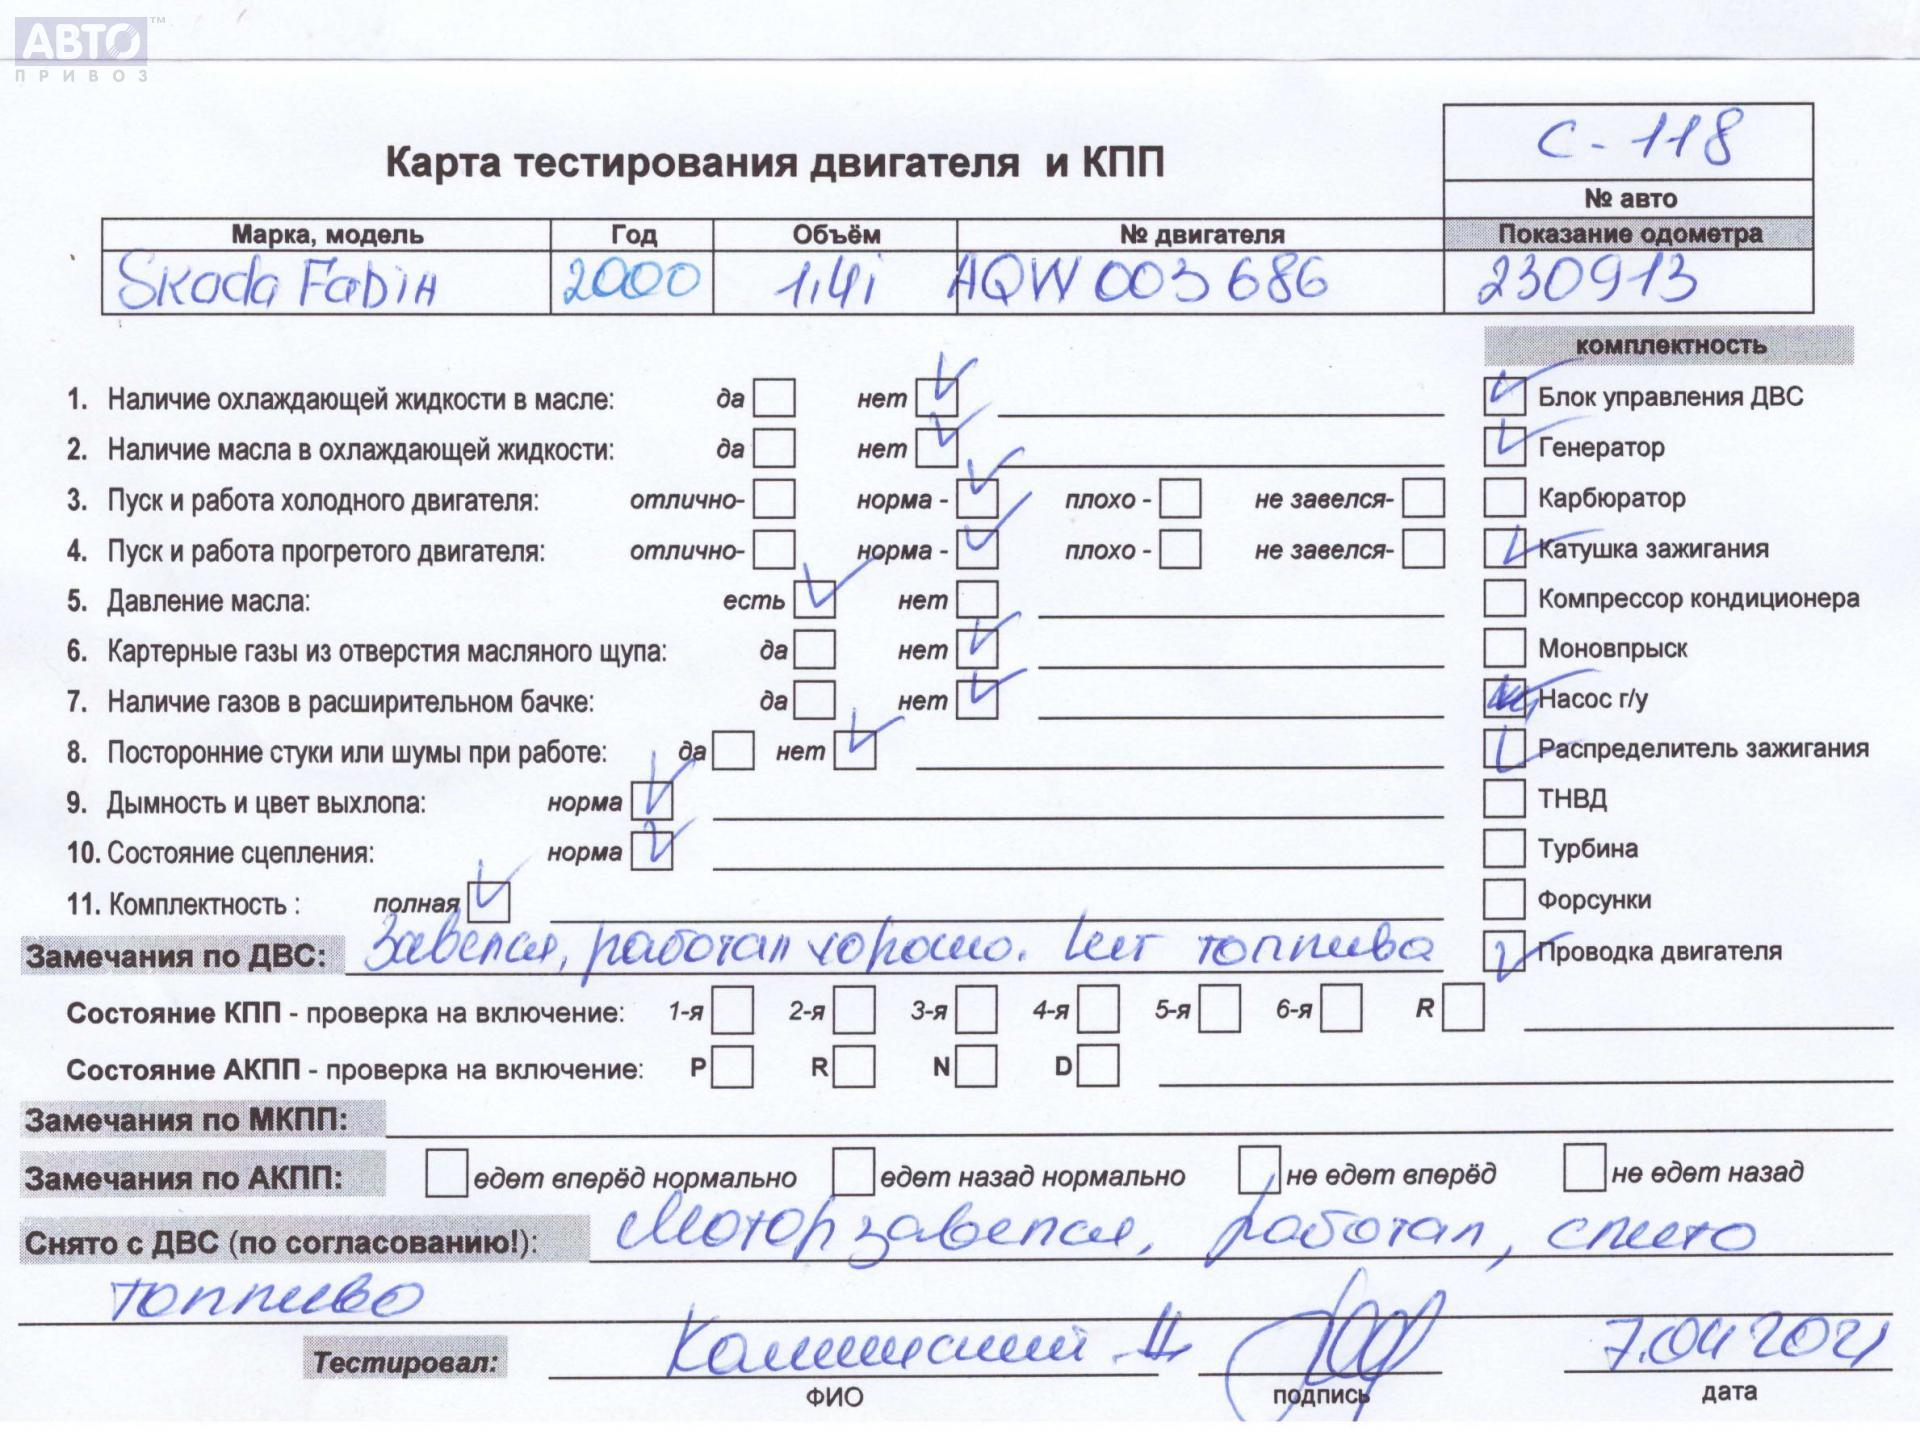 АВТО ™
ПРИВОЗ
С - 118
Карта тестирования двигателя и КПП
№ авто
Марка, модель Год Объём № двигателя Показание одометра
Skoda Fabia 2000 1,4i AQW 003 686 230913
комплектность
1. Наличие охлаждающей жидкости в масле: да нет Блок управления ДВС
2. Наличие масла в охлаждающей жидкости: да нет Генератор
3. Пуск и работа холодного двигателя: отлично- норма - плохо - не завелся- Карбюратор
4. Пуск и работа прогретого двигателя: отлично- норма - плохо - не завелся- Катушка зажигания
5. Давление масла: есть нет Компрессор кондиционера
6. Картерные газы из отверстия масляного щупа: да нет Моновпрыск
7. Наличие газов в расширительном бачке: да нет Насос г/у
8. Посторонние стуки или шумы при работе: да нет Распределитель зажигания
9. Дымность и цвет выхлопа: норма ТНВД
10. Состояние сцепления: норма Турбина
11. Комплектность : полная Форсунки
Замечания по ДВС: Завелся, работал хорошо. Нет топлива Проводка двигателя
Состояние КПП - проверка на включение: 1-я 2-я 3-я 4-я 5-я 6-я R
Состояние АКПП - проверка на включение: P R N D
Замечания по МКПП:
Замечания по АКПП: едет вперёд нормально едет назад нормально не едет вперёд не едет назад
Снято с ДВС (по согласованию!): Мотор завелся, работал, слито
топливо
Тестировал: 7.04 2021
ФИО подпись дата